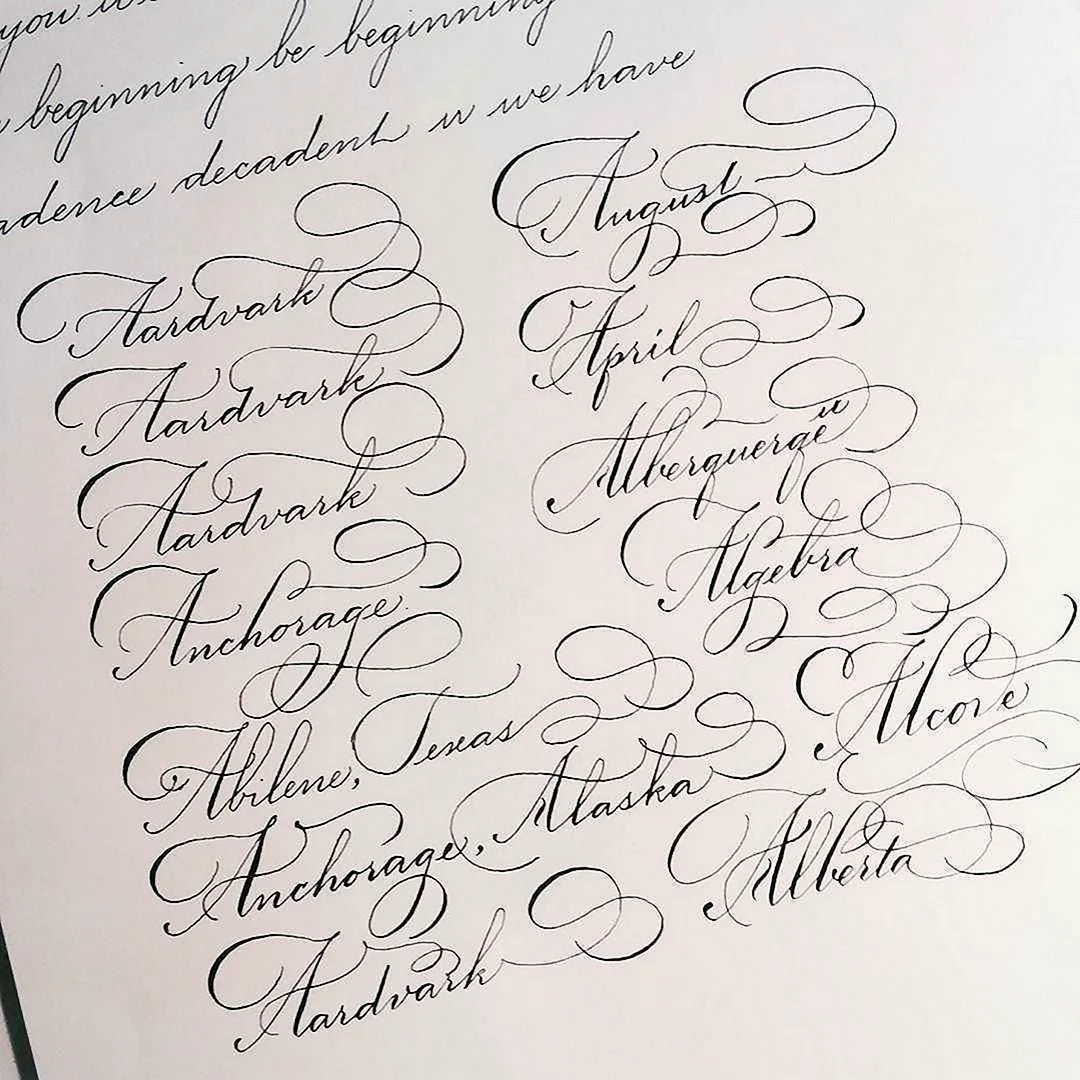 you
beginning be beginning
decadent u we have
Aardvark
Aardvark
Aardvark
Anchorage
Abilene, Texas
Anchorage, Alaska
Aardvark
August
April
Alberquerqe u
Algebra
Alcove
Alberta